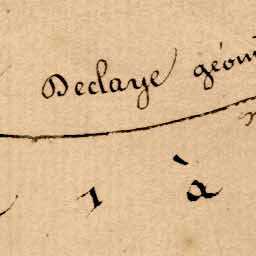 Declaye géom
1 à